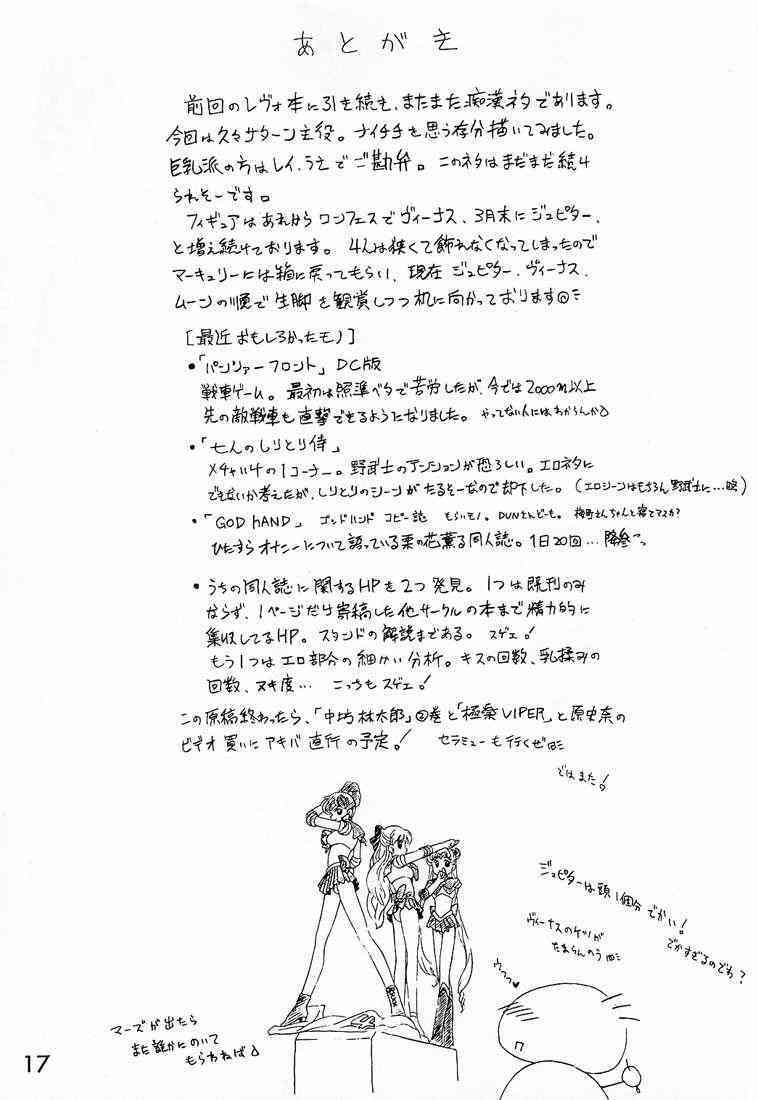 あとがき
前回のレヴォ本に引き続き、またまた痴漢ネタであります。
今回は久々サターン主役。ナイチチを思う存分描いてみました。
巨乳派の方はレイ、うさでご勘弁。このネタはまだまだ続け
られそーです。
フィギュアはあれからワンフェスでヴィーナス、3月末にジュピター、
と増え続けております。4人は狭くて飾れなくなってしまったので
マーキュリーには箱に戻ってもらい、現在ジュピター、ヴィーナス、
ムーンの順で生脚を観賞しつつ机に向かっております
[最近おもしろかったモノ]
•「パンツァーフロント」DC版
戦車ゲーム。最初は照準ベタで苦労したが、今では2000m以上
先の敵戦車も直撃できるようになりました。やってない人にはわからんか
•「七人のしりとり侍」
メチャイケの1コーナー。野武士のテンションが恐ろしい。エロネタに
できないか考えたが、しりとりのシーンがたるそーなので却下した。(エロシーンはもちろん野武士に…)
•「GOD HAND」ゴッドハンド コピー誌 もらいモノ。DUNさんどーも。ちゃんと寝てますか?
ひたすらオナニーについて語っている栗の花薫る同人誌。1日20回…降参っ
•うちの同人誌に関するHPを2つ発見。1つは既刊のみ
ならず、1ページだけ寄稿した他サークルの本まで精力的に
集収してるHP。スタンドの解説まである。スゲェ!
もう1つはエロ部分の細かい分析。キスの回数、乳揉みの
回数、ヌキ度… こっちもスゲェ!
この原稿終わったら、「中坊林太郎」②巻と「極楽VIPER」と原史奈の
ビデオ買いにアキバ直行の予定!セラミューも行くぜ
ではまた!
ジュピターは頭1個分でかい!
でかすぎるのでわ?
ヴィーナスのケツが
たまらんのう
ウウッ♥
マーズが出たら
また誰かにのいて
もらわねば
17